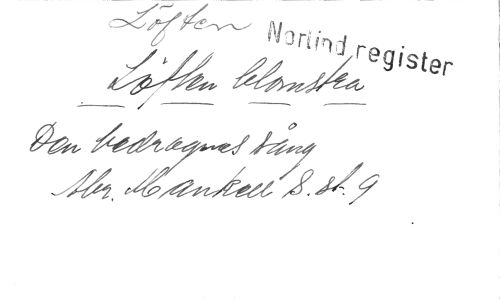 Löften
Norlind register
Löften blomstra
Den bedragnes sång
Abr. Mankell S. st. 9